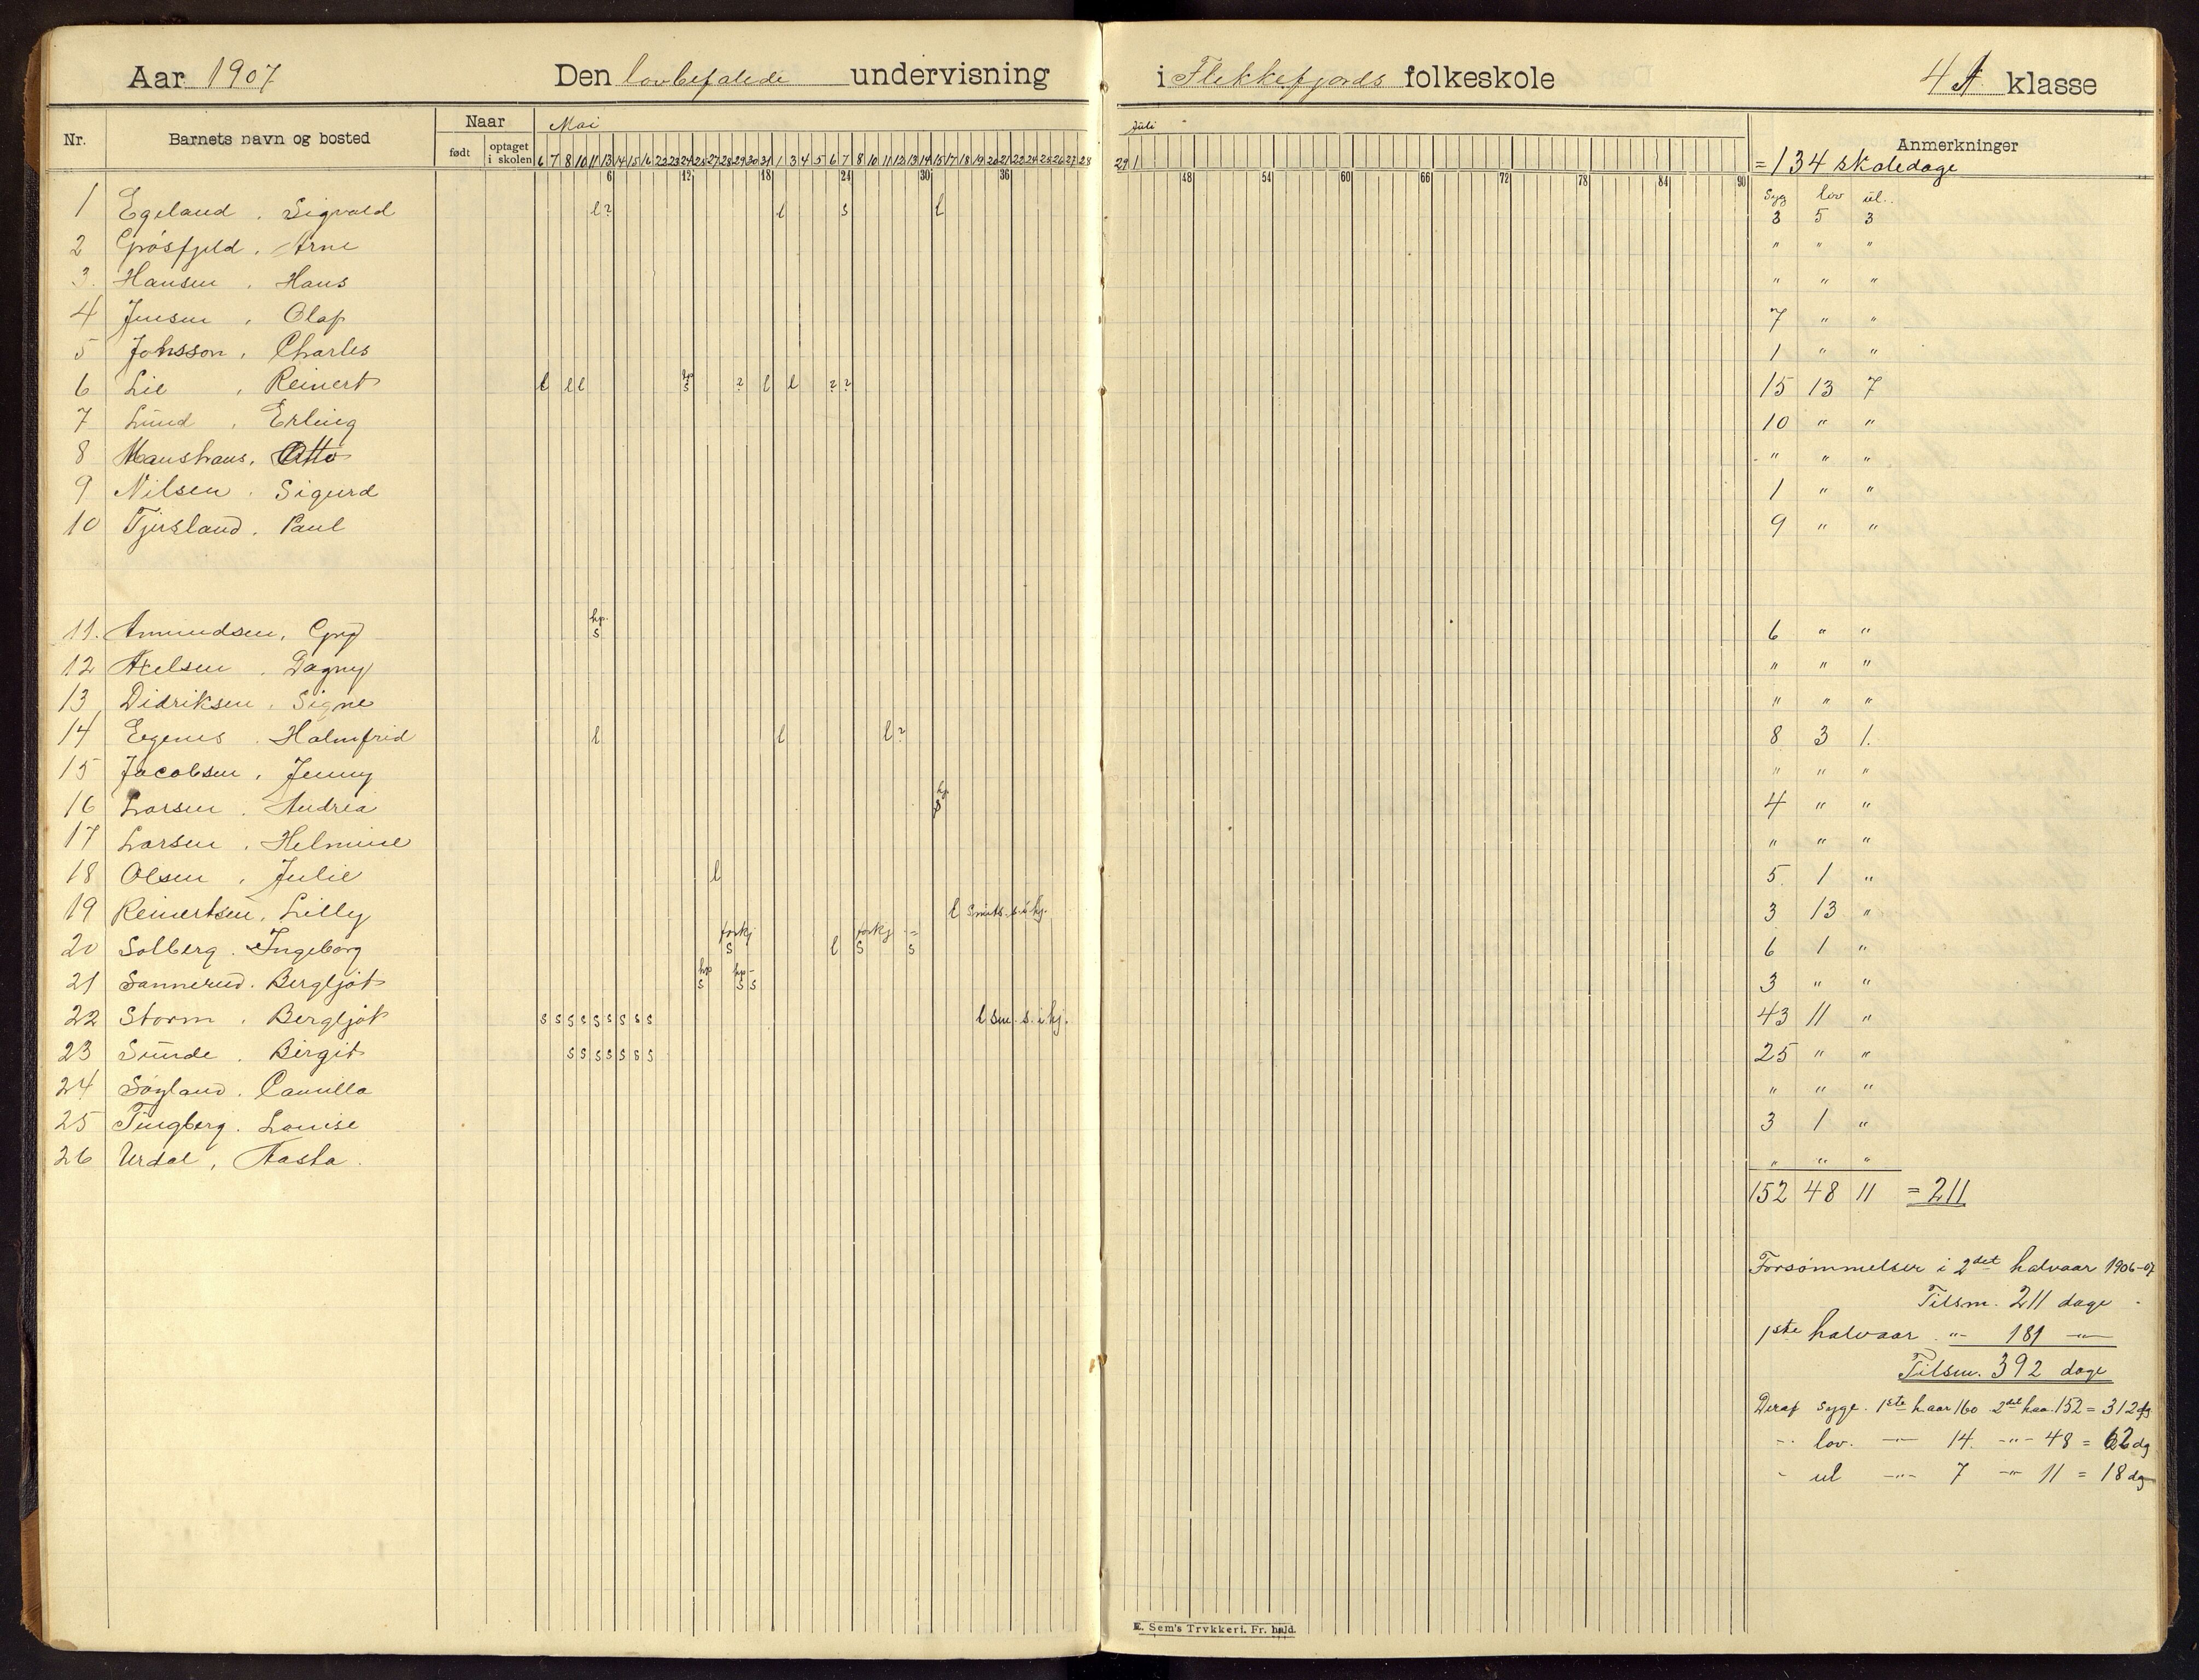 Aar 1907 Den lovbefalede undervisning i Flekkefjords folkeskole 4 A klasse
Nr. Barnets navn og bosted Naar født optaget i skolen Mai Juli Anmerkninger
6 7 8 10 11 13 14 15 16 22 23 24 25 27 28 29 30 31 1 3 4 5 6 7 8 10 11 12 13 14 15 17 18 19 20 21 22 24 25 26 27 28 29 1 = 134 skoledage
6 12 18 24 30 36 48 54 60 66 72 78 84 90
Syg lov ul.
1 Egeland, Sigvald l ? l s l 3 5 3
2 Grøsfjeld, Arne " " "
3. Hansen, Hans " " "
4 Jensen, Olaf 7 " "
5 Johsson, Charles 1 " "
6 Lie, Reinert l l l hp s ? l l ? ? 15 13 7
7 Lund, Erling 10 " "
8 Maushaus, Otto " " "
9 Nilsen, Sigurd 1 " "
10 Tjersland, Paul 9 " "
11. Amundsen, Gyd hp. s 6 " "
12 Axelsen, Dagny " " "
13 Didriksen, Signe " " "
14 Egenes, Holmfrid l l l ? 8 3 1.
15 Jacobsen, Jenny " " "
16 Larsen, Andrea hp s 4 " "
17 Larsen, Helmine " " "
18 Olsen, Julie l 5 1 "
19 Reinertsen, Lilly l smits. s. i hj. 3 13 "
20 Solberg, Ingeborg forkj s l forkj s " s 6 1 "
21 Sannerud, Bergljot hp s hp s - s 3 " "
22 Storm, Bergljot s s s s s s s s s l sm. s. i hj. 43 11 "
23 Sunde, Birgit s s s s s s s 25 " "
24 Søyland, Camilla " " "
25 Tingberg, Louise 3 1 "
26 Urdal, Aasta. " " "
152 48 11 = 211
Forsømmelser i 2det halvaar 1906-07
Tilsm. 211 dage
1ste halvaar -"- 181 -"-
Tilsm. 392 dage
Deraf syge. 1ste h.aar 160 2det haa. 152 = 312 dg
-"- lov. -"- 14. -"- 48 = 62 dg
-"- ul -"- 7 -"- 11 = 18 dg
E. Sem's Trykkeri, Fr. hald.